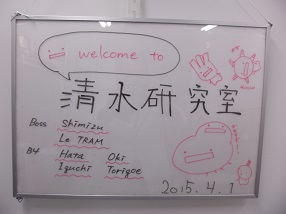 welcome to
清水研究室
Boss Shimizu
Le TRAM
B4 Hata Oki
Iguchi Torigoe
2015.4.1